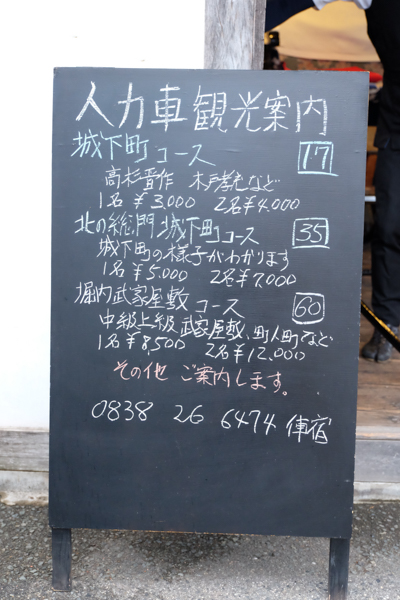 人力車観光案内
城下町コース 17
高杉晋作 木戸孝允など
1名¥3,000 2名¥4,000
北の総門城下町コース 35
城下町の様子がわかります
1名¥5,000 2名¥7,000
堀内武家屋敷コース 60
中級上級武家屋敷、町人町など
1名¥8,500 2名¥12,000
その他 ご案内します。
0838 26 6474 俥宿